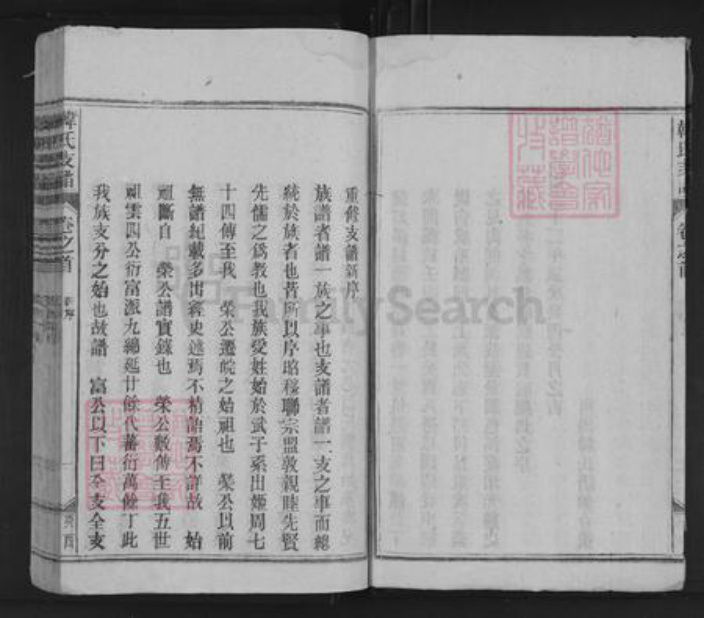 重修支譜新序
族譜者譜一族之事也支譜者譜一支之事而總
統於族者也昔所以序昭穆聯宗盟敦親睦先賢
先儒之為教也我族受姓始於武子系出姬周七
十四傳至我 榮公遷皖之始祖也 榮公以前
無譜紀載多出稗史述焉不精語焉不詳故 始
祖斷自 榮公譜實錄也 榮公數傳至我五世
祖雲四公衍富派九綿延廿餘代蕃衍萬餘丁此
我族支分之始也故譜 富公以下曰全支全支
韓氏支譜 卷之首 新序 一 癸酉
FamilySearch